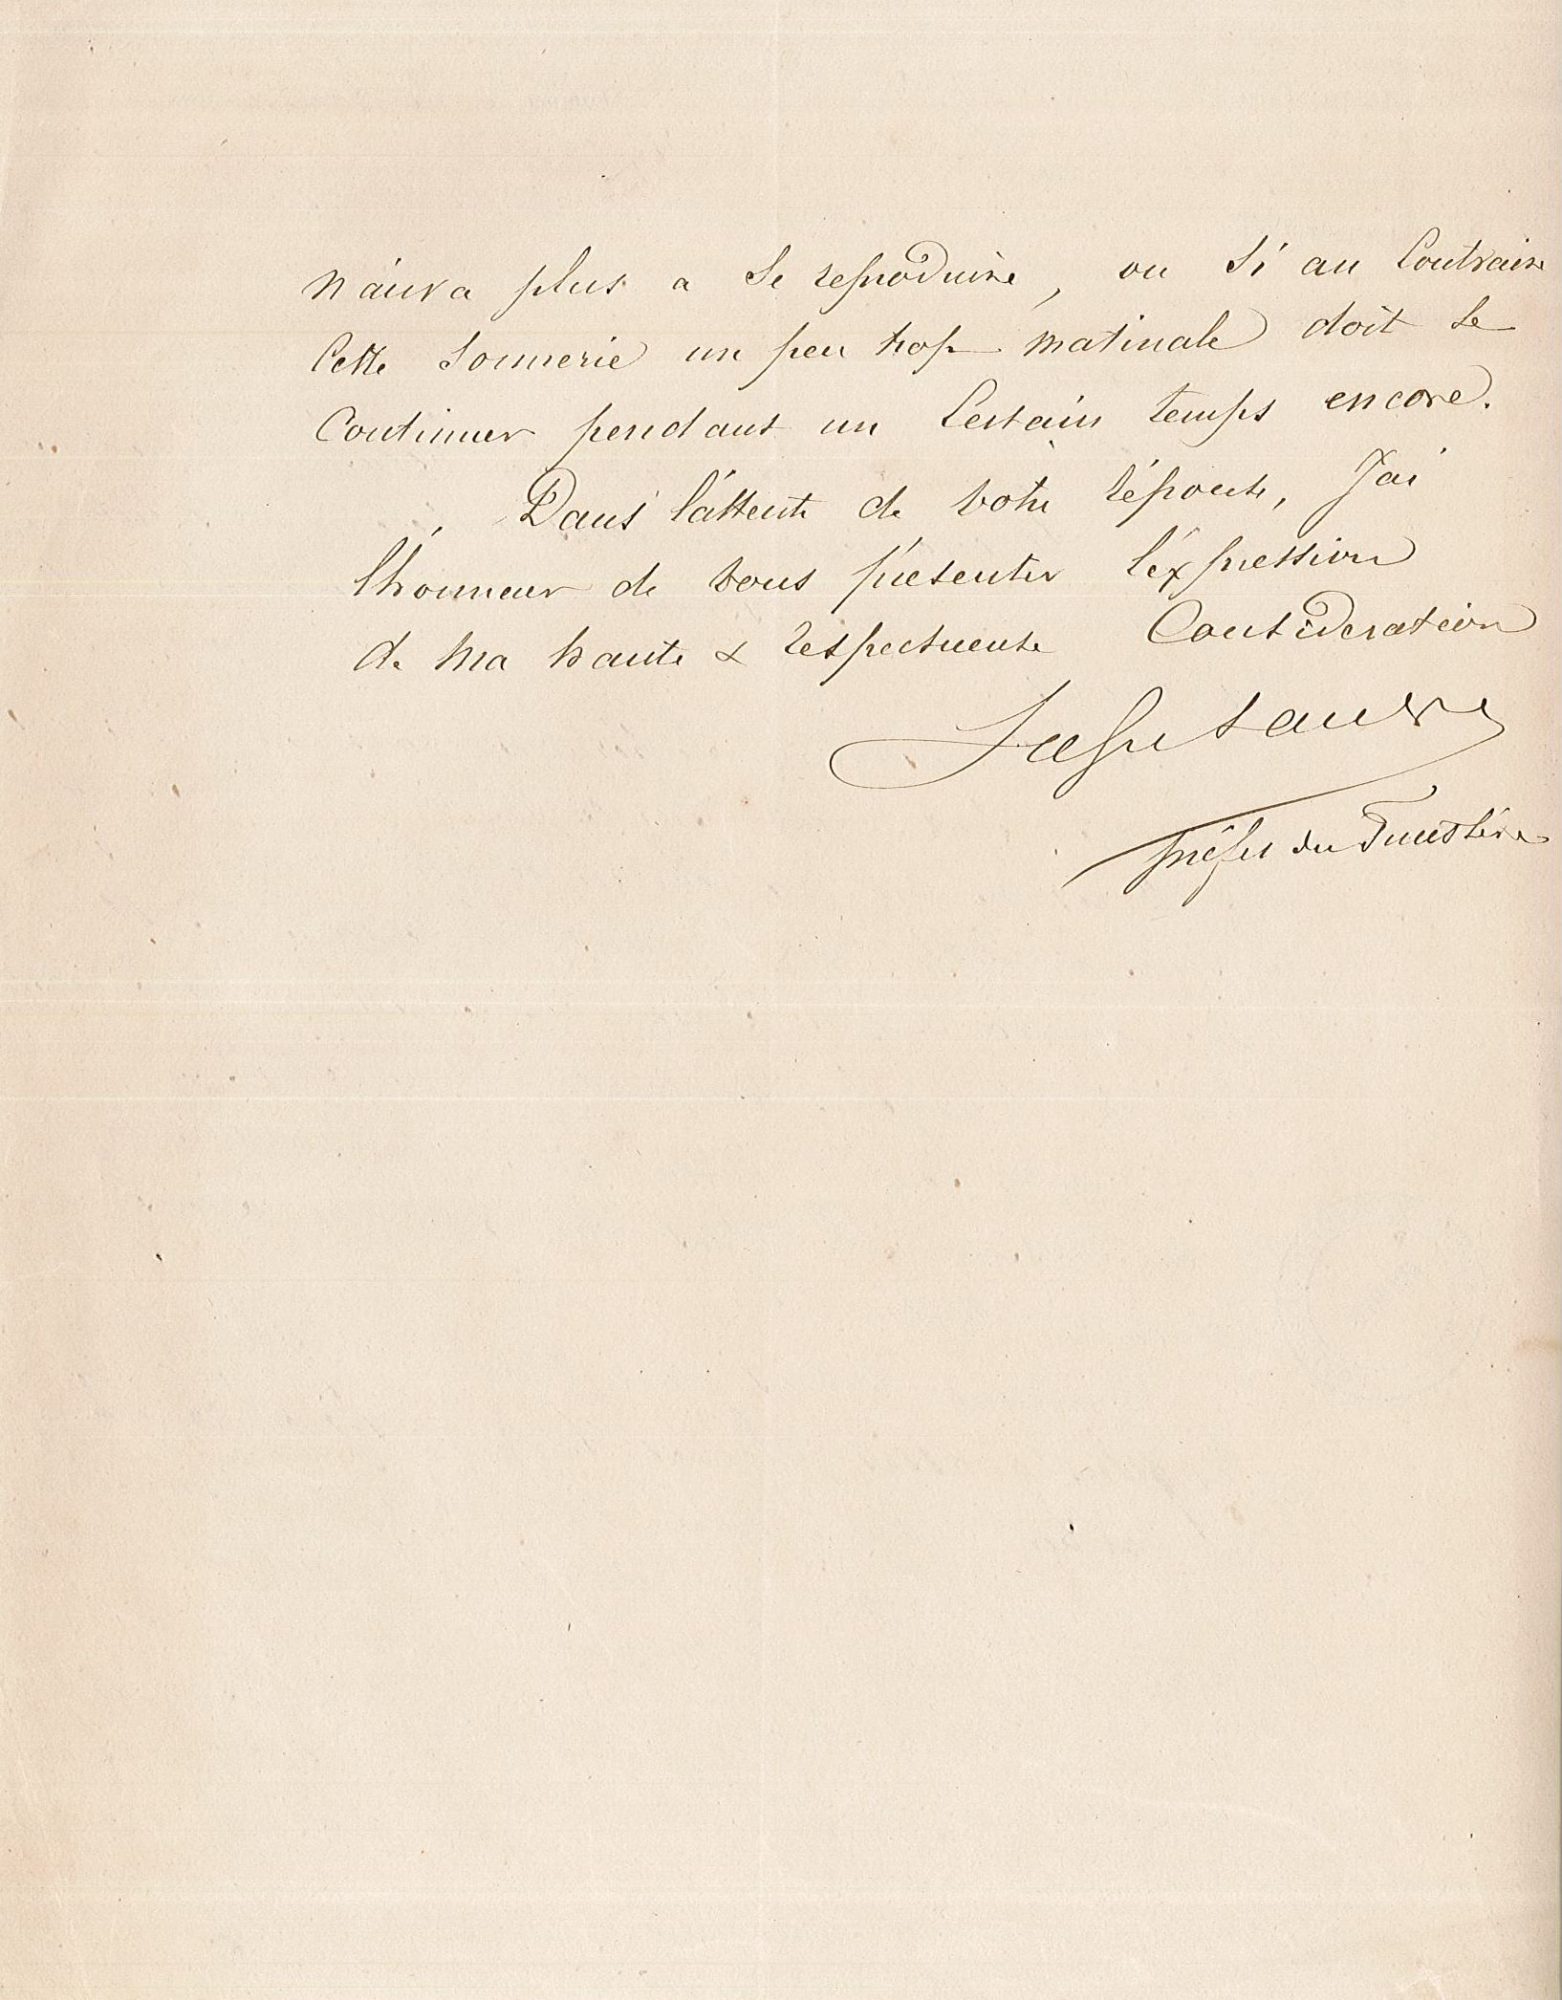 n'aura plus a se reproduire, ou si au Contraire
Cette sonnerie un peu trop matinale doit se
Continuer pendant un Certain temps encore.
Dans l'attente de votre réponse, J'ai
l'honneur de vous présenter l'expression
de ma haute & respectueuse Considération
préfet du Finistère